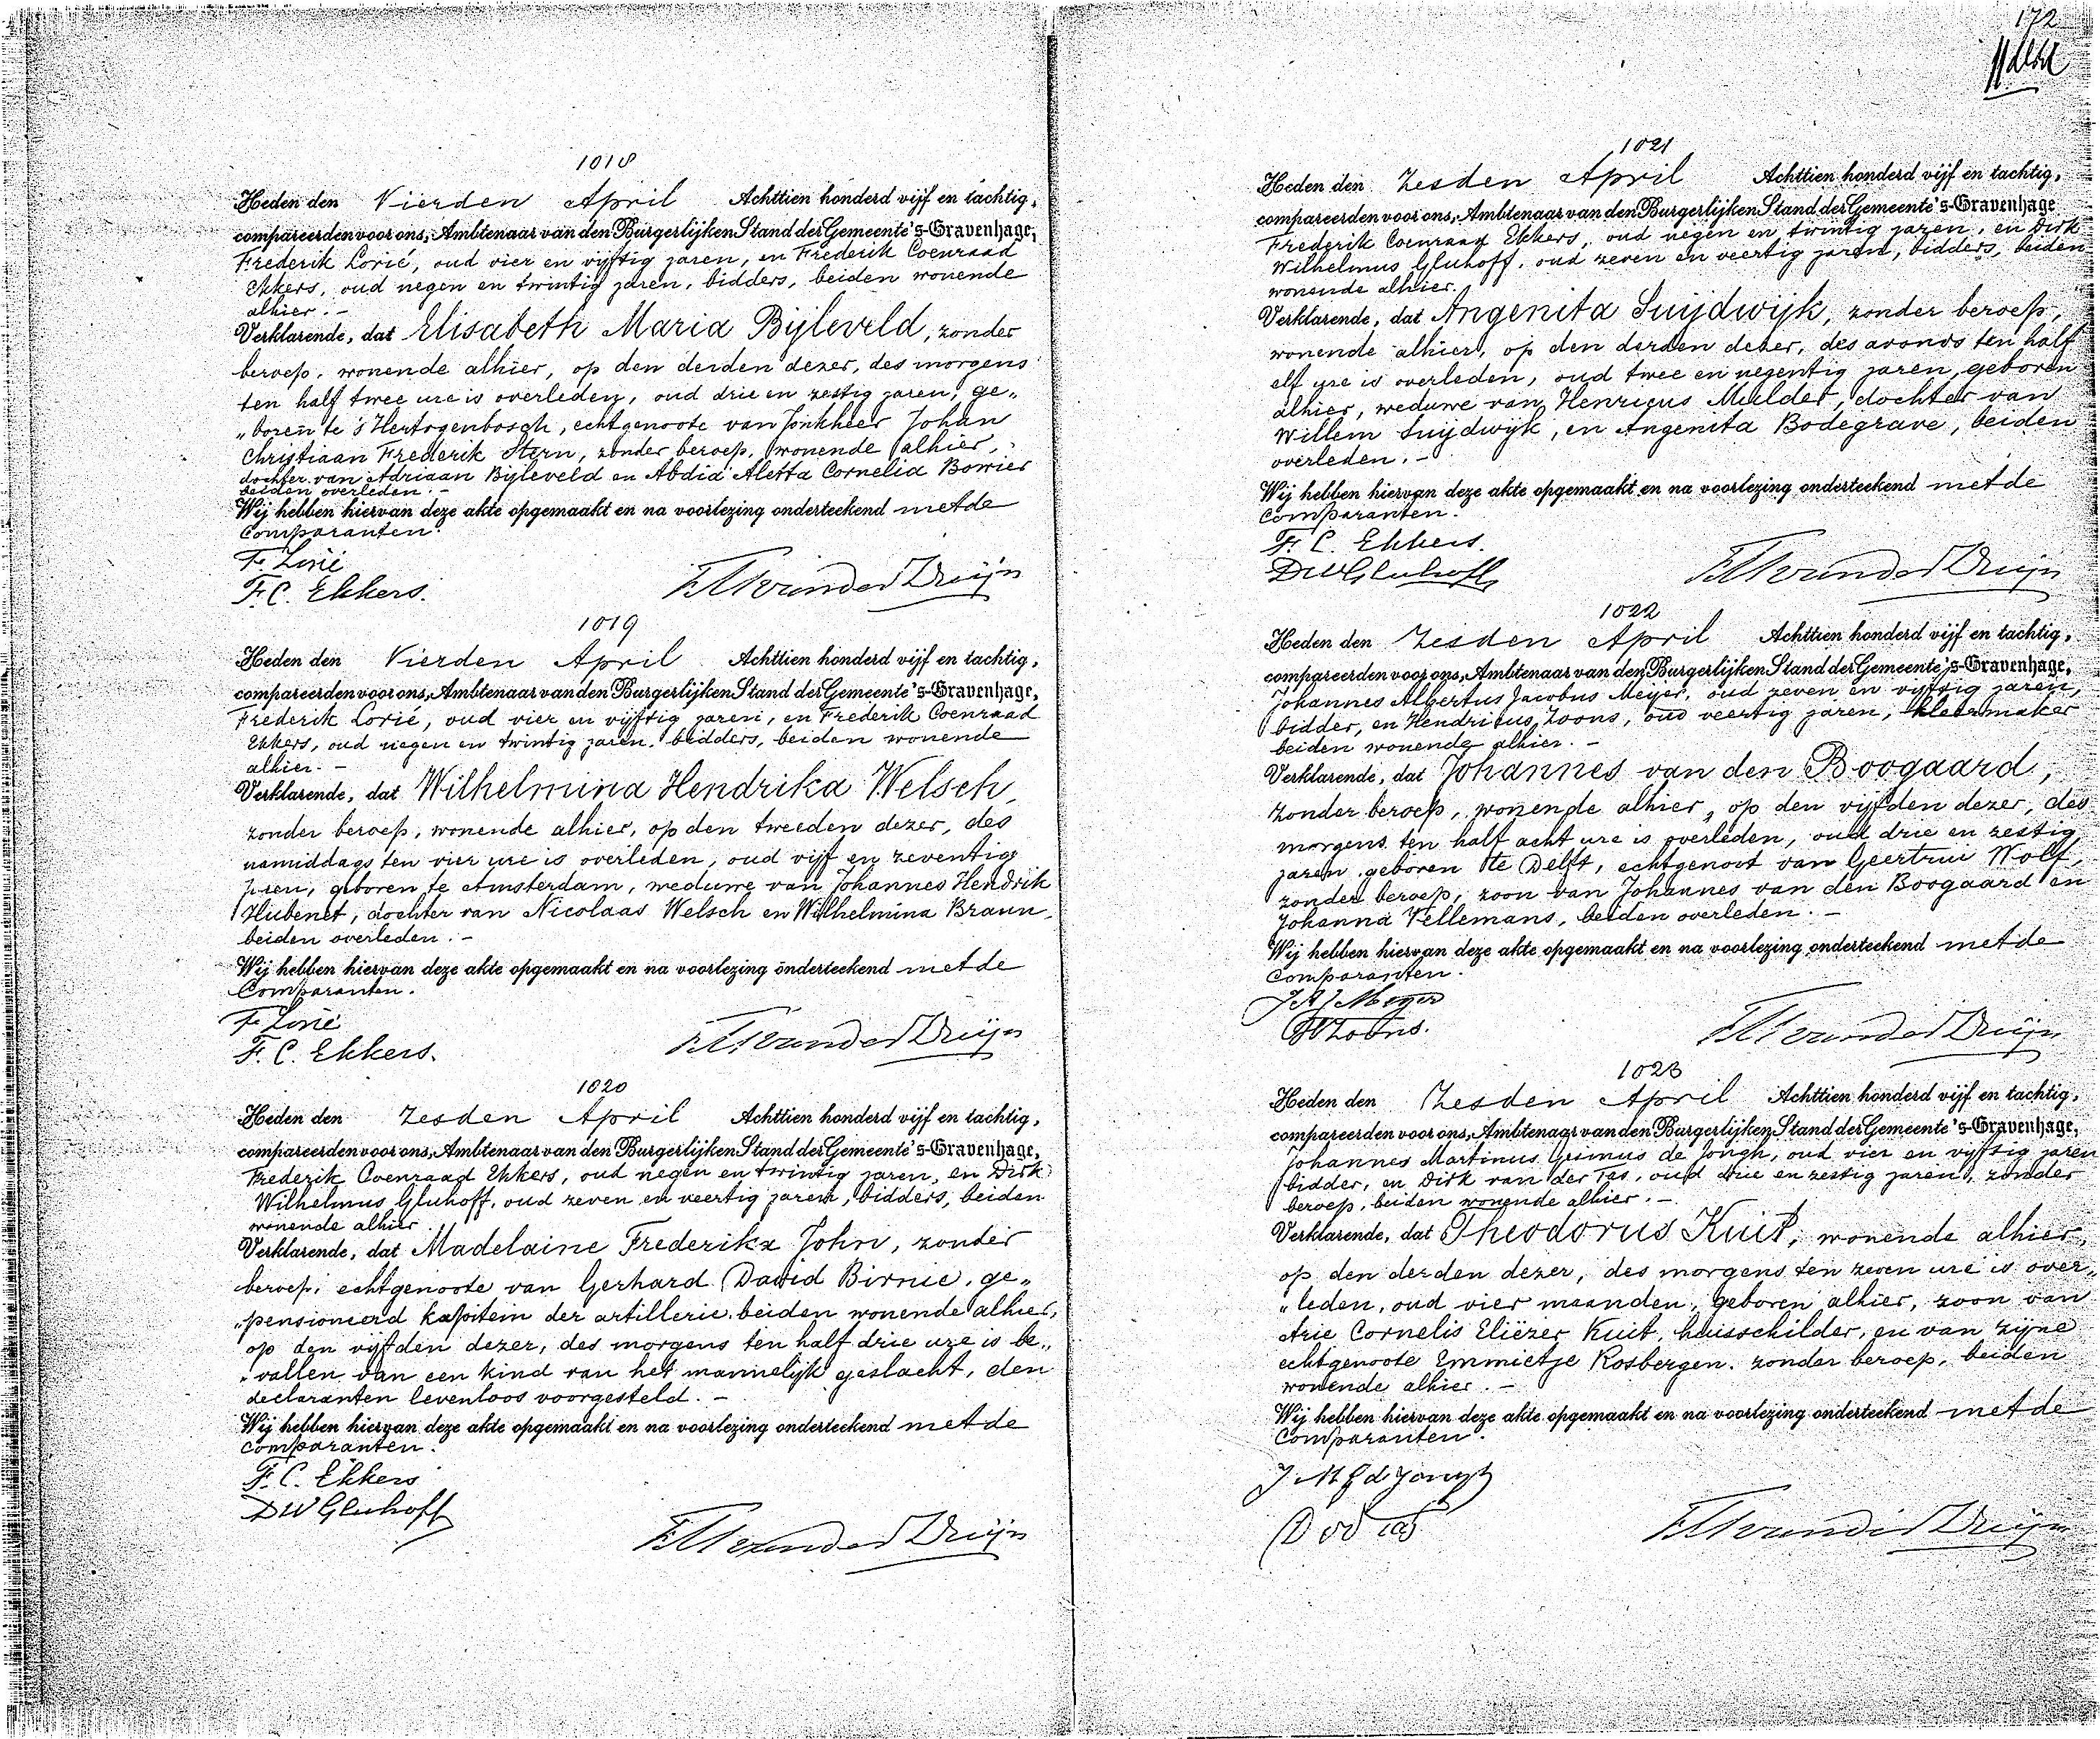 1018
Heden den Vierden April Achttien honderd vijf en tachtig,
compareerden voor ons, Ambtenaar van den Burgerlijken Stand der Gemeente 's-Gravenhage,
Frederik Lorié, oud vier en vijftig jaren, en Frederik Coenraad
Ekkers, oud negen en twintig jaren, bidders, beiden wonende
alhier. –
Verklarende, dat Elisabeth Maria Bijleveld, zonder
beroep, wonende alhier, op den derden dezer, des morgens
ten half twee ure is overleden, oud drie en zestig jaren, ge„
„boren te 's Hertogenbosch, echtgenoote van Jonkheer Johan
Christiaan Frederik Stern, zonder beroep, wonende alhier,
dochter van Adriaan Bijleveld en Abdia Aletta Cornelia Bowier
beiden overleden. –
Wij hebben hiervan deze akte opgemaakt en na voorlezing onderteekend met de
Comparanten.
F. Lorié
F. C. Ekkers.
van der Druijn
1019
Heden den Vierden April Achttien honderd vijf en tachtig,
compareerden voor ons, Ambtenaar van den Burgerlijken Stand der Gemeente 's-Gravenhage,
Frederik Lorié, oud vier en vijftig jaren, en Frederik Coenraad
Ekkers, oud negen en twintig jaren, bidders, beiden wonende
alhier. –
Verklarende, dat Wilhelmina Hendrika Welsch,
zonder beroep, wonende alhier, op den tweeden dezer, des
namiddags ten vier ure is overleden, oud vijf en zeventig
jaren, geboren te Amsterdam, weduwe van Johannes Hendrik
Hubenet, dochter van Nicolaas Welsch en Wilhelmina Braun,
beiden overleden. –
Wij hebben hiervan deze akte opgemaakt en na voorlezing onderteekend met de
Comparanten.
F. Lorié
F. C. Ekkers.
van der Druijn
1020
Heden den Zesden April Achttien honderd vijf en tachtig,
compareerden voor ons, Ambtenaar van den Burgerlijken Stand der Gemeente 's-Gravenhage,
Frederik Coenraad Ekkers, oud negen en twintig jaren, en Dirk
Wilhelmus Gluhoff, oud zeven en veertig jaren, bidders, beiden
wonende alhier.
Verklarende, dat Madelaine Frederika John, zonder
beroep, echtgenoote van Gerhard David Birnie, ge„
„pensioneerd kapitein der artillerie, beiden wonende alhier,
op den vijfden dezer, des morgens ten half drie ure is be„
„vallen van een kind van het mannelijk geslacht, den
declaranten levenloos voorgesteld. –
Wij hebben hiervan deze akte opgemaakt en na voorlezing onderteekend met de
Comparanten.
F. C. Ekkers
DW Gluhoff
van der Druijn
172
1021
Heden den Zesden April Achttien honderd vijf en tachtig,
compareerden voor ons, Ambtenaar van den Burgerlijken Stand der Gemeente 's-Gravenhage
Frederik Coenraad Ekkers, oud negen en twintig jaren, en Dirk
Wilhelmus Gluhoff, oud zeven en veertig jaren, bidders, beiden
wonende alhier.
Verklarende, dat Angenita Suijdwijk, zonder beroep,
wonende alhier, op den derden dezer, des avonds ten half
elf ure is overleden, oud twee en negentig jaren, geboren
alhier, weduwe van Henricus Mulder, dochter van
Willem Suijdwijk, en Angenita Bodegrave, beiden
overleden. –
Wij hebben hiervan deze akte opgemaakt en na voorlezing onderteekend met de
Comparanten.
F. C. Ekkers.
DW Gluhoff
van der Druijn
1022
Heden den Zesden April Achttien honderd vijf en tachtig,
compareerden voor ons, Ambtenaar van den Burgerlijken Stand der Gemeente 's-Gravenhage,
Johannes Albertus Jacobus Meijer, oud zeven en vijftig jaren,
bidder, en Hendricus Zoons, oud veertig jaren, kleermaker
beiden wonende alhier. –
Verklarende, dat Johannes van den Boogaard,
zonder beroep, wonende alhier, op den vijfden dezer, des
morgens ten half acht ure is overleden, oud drie en zestig
jaren, geboren te Delft, echtgenoot van Geertrui Wolf,
zonder beroep, zoon van Johannes van den Boogaard en
Johanna Vellemans, beiden overleden. –
Wij hebben hiervan deze akte opgemaakt en na voorlezing onderteekend met de
Comparanten.
JAJ Meyer
H Zoons.
van der Druijn
1023
Heden den Zesden April Achttien honderd vijf en tachtig,
compareerden voor ons, Ambtenaar van den Burgerlijken Stand der Gemeente 's-Gravenhage,
Johannes Martinus Grimus de Jongh, oud vier en vijftig jaren
bidder, en Dirk van der Tas, oud drie en zestig jaren, zonder
beroep, beiden wonende alhier. –
Verklarende, dat Theodorus Kuit, wonende alhier,
op den derden dezer, des morgens ten zeven ure is over„
„leden, oud vier maanden, geboren alhier, zoon van
Arie Cornelis Eliëzer Kuit, huisschilder, en van zijne
echtgenoote Emmietje Rosbergen, zonder beroep, beiden
wonende alhier. –
Wij hebben hiervan deze akte opgemaakt en na voorlezing onderteekend met de
Comparanten.
J M G d Jongh
D vd Tas
van der Druijn